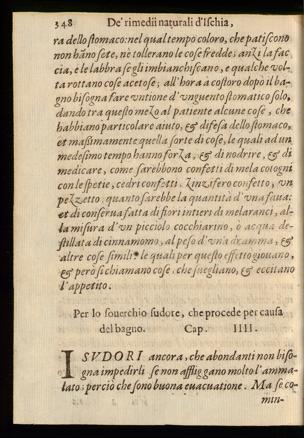 348 De' rimedii naturali d'Ischia,
ra dello stomaco: nel qual tempo coloro, che patiscono
non hāno sete, nè tollerano le cose fredde; anzi la fac
cia, e le labbra se gli imbianchiscano, e qualche vol-
ta rottano cose acetose; all'hora à costoro dopò il ba-
gno bisogna fare vntione d'vnguento stomatico solo,
dando tra questo mezo al patiente alcune cose, che
habbiano particolare aiuto, & difesa dello stomaco,
et massimamente quella sorte di cose, le quali ad un
medesimo tempo hanno forza, & di nodrire, & di
medicare, come sarebbono confetti di mela cotogni
con le spetie, cedri confetti, zinzifero confetto, vn
pezzetto, quanto sarebbe la quantità d'vna faua:
et di conserua fatta di fiori intieri di melaranci, al-
la misura d'vn picciolo cocchiarino, ò acqua de-
stillata di cinnamomo, al peso d'vna dramma, &
altre cose simili: le quali per questo effetto giouano,
& però si chiamano cose, che suegliano, & eccitano
l'appetito.
Per lo souerchio sudore, che procede per causa
del bagno. Cap. IIII.
I SVDORI ancora, che abondanti non biso-
gna impedirli se non affliggano molto l'amma-
lato: perciò che sono buona euacuatione. Ma se co-
min-